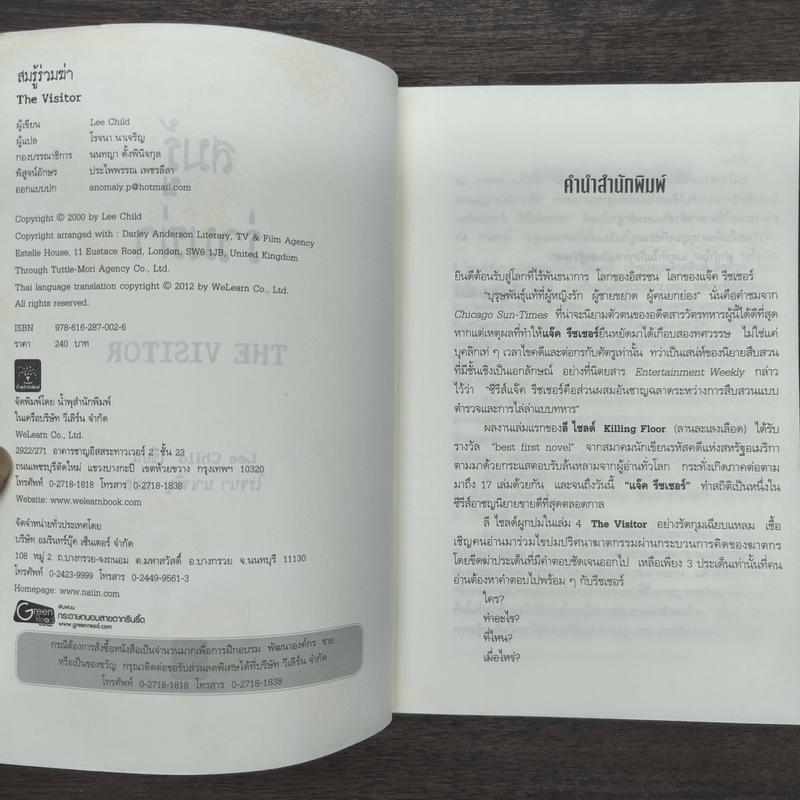 สมรู้ร่วมฆ่า
The Visitor
ผู้เขียน Lee Child
ผู้แปล โรจนา นาเจริญ
กองบรรณาธิการ นนทญา ตั้งพินิจกุล
พิสูจน์อักษร ประไพพรรณ เพชรลีลา
ออกแบบปก anomaly.p@hotmail.com
Copyright © 2000 by Lee Child
Copyright arranged with : Darley Anderson Literary, TV & Film Agency
Estelle House, 11 Eustace Road, London, SW6 1JB, United Kingdom
Through Tuttle-Mori Agency Co., Ltd.
Thai language translation copyright © 2012 by WeLearn Co., Ltd.
All rights reserved.
ISBN 978-616-287-002-6
ราคา 240 บาท
น้ำพุสำนักพิมพ์
จัดพิมพ์โดย น้ำพุสำนักพิมพ์
ในเครือบริษัท วีเลิร์น จำกัด
WeLearn Co., Ltd.
2922/271 อาคารชาญอิสสระทาวเวอร์ 2 ชั้น 23
ถนนเพชรบุรีตัดใหม่ แขวงบางกะปิ เขตห้วยขวาง กรุงเทพฯ 10320
โทรศัพท์ 0-2718-1818 โทรสาร 0-2718-1838
Website: www.welearnbook.com
จัดจำหน่ายทั่วประเทศโดย
บริษัท อมรินทร์บุ๊ค เซ็นเตอร์ จำกัด
108 หมู่ 2 ถ.บางกรวย-จงถนอม ต.มหาสวัสดิ์ อ.บางกรวย จ.นนทบุรี 11130
โทรศัพท์ 0-2423-9999 โทรสาร 0-2449-9561-3
Homepage: www.naiin.com
Green Read
พิมพ์บน
กระดาษถนอมสายตากรีนรี้ด
www.greenread.com
กรณีต้องการสั่งซื้อหนังสือเป็นจำนวนมากเพื่อการฝึกอบรม พัฒนาองค์กร ขาย
หรือเป็นของขวัญ กรุณาติดต่อขอรับส่วนลดพิเศษได้ที่บริษัท วีเลิร์น จำกัด
โทรศัพท์ 0-2718-1818 โทรสาร 0-2718-1838
คำนำสำนักพิมพ์
ยินดีต้อนรับสู่โลกที่ไร้พันธนาการ โลกของอิสรชน โลกของแจ๊ค รีชเชอร์
"บุรุษพันธุ์แท้ที่ผู้หญิงรัก ผู้ชายขยาด ผู้คนยกย่อง" นั่นคือคำชมจาก
Chicago Sun-Times ที่น่าจะนิยามตัวตนของอดีตสารวัตรทหารผู้นี้ได้ดีที่สุด
หากแต่เหตุผลที่ทำให้แจ๊ค รีชเชอร์ยืนหยัดมาได้เกือบสองทศวรรษ ไม่ใช่แค่
บุคลิกเท่ ๆ เวลาไขคดีและต่อกรกับศัตรูเท่านั้น ทว่าเป็นเสน่ห์ของนิยายสืบสวน
ที่มีชั้นเชิงเป็นเอกลักษณ์ อย่างที่นิตยสาร Entertainment Weekly กล่าว
ไว้ว่า "ซีรีส์แจ๊ค รีชเชอร์คือส่วนผสมอันชาญฉลาดระหว่างการสืบสวนแบบ
ตำรวจและการไล่ล่าแบบทหาร"
ผลงานเล่มแรกของลี ไชลด์ Killing Floor (ลานละเลงเลือด) ได้รับ
รางวัล "best first novel" จากสมาคมนักเขียนรหัสคดีแห่งสหรัฐอเมริกา
ตามมาด้วยกระแสตอบรับล้นหลามจากผู้อ่านทั่วโลก กระทั่งเกิดภาคต่อตาม
มาถึง 17 เล่มด้วยกัน และจนถึงวันนี้ "แจ๊ค รีชเชอร์" ทำสถิติเป็นหนึ่งใน
ซีรีส์อาชญนิยายขายดีที่สุดตลอดกาล
ลี ไชลด์ผูกปมในเล่ม 4 The Visitor อย่างรัดกุมเฉียบแหลม เชื้อ
เชิญคนอ่านมาร่วมไขปมปริศนาฆาตกรรมผ่านกระบวนการคิดของฆาตกร
โดยขีดฆ่าประเด็นที่มีคำตอบชัดเจนออกไป เหลือเพียง 3 ประเด็นเท่านั้นที่คน
อ่านต้องหาคำตอบไปพร้อม ๆ กับรีชเชอร์
ใคร?
ทำอะไร?
ที่ไหน?
เมื่อไหร่?